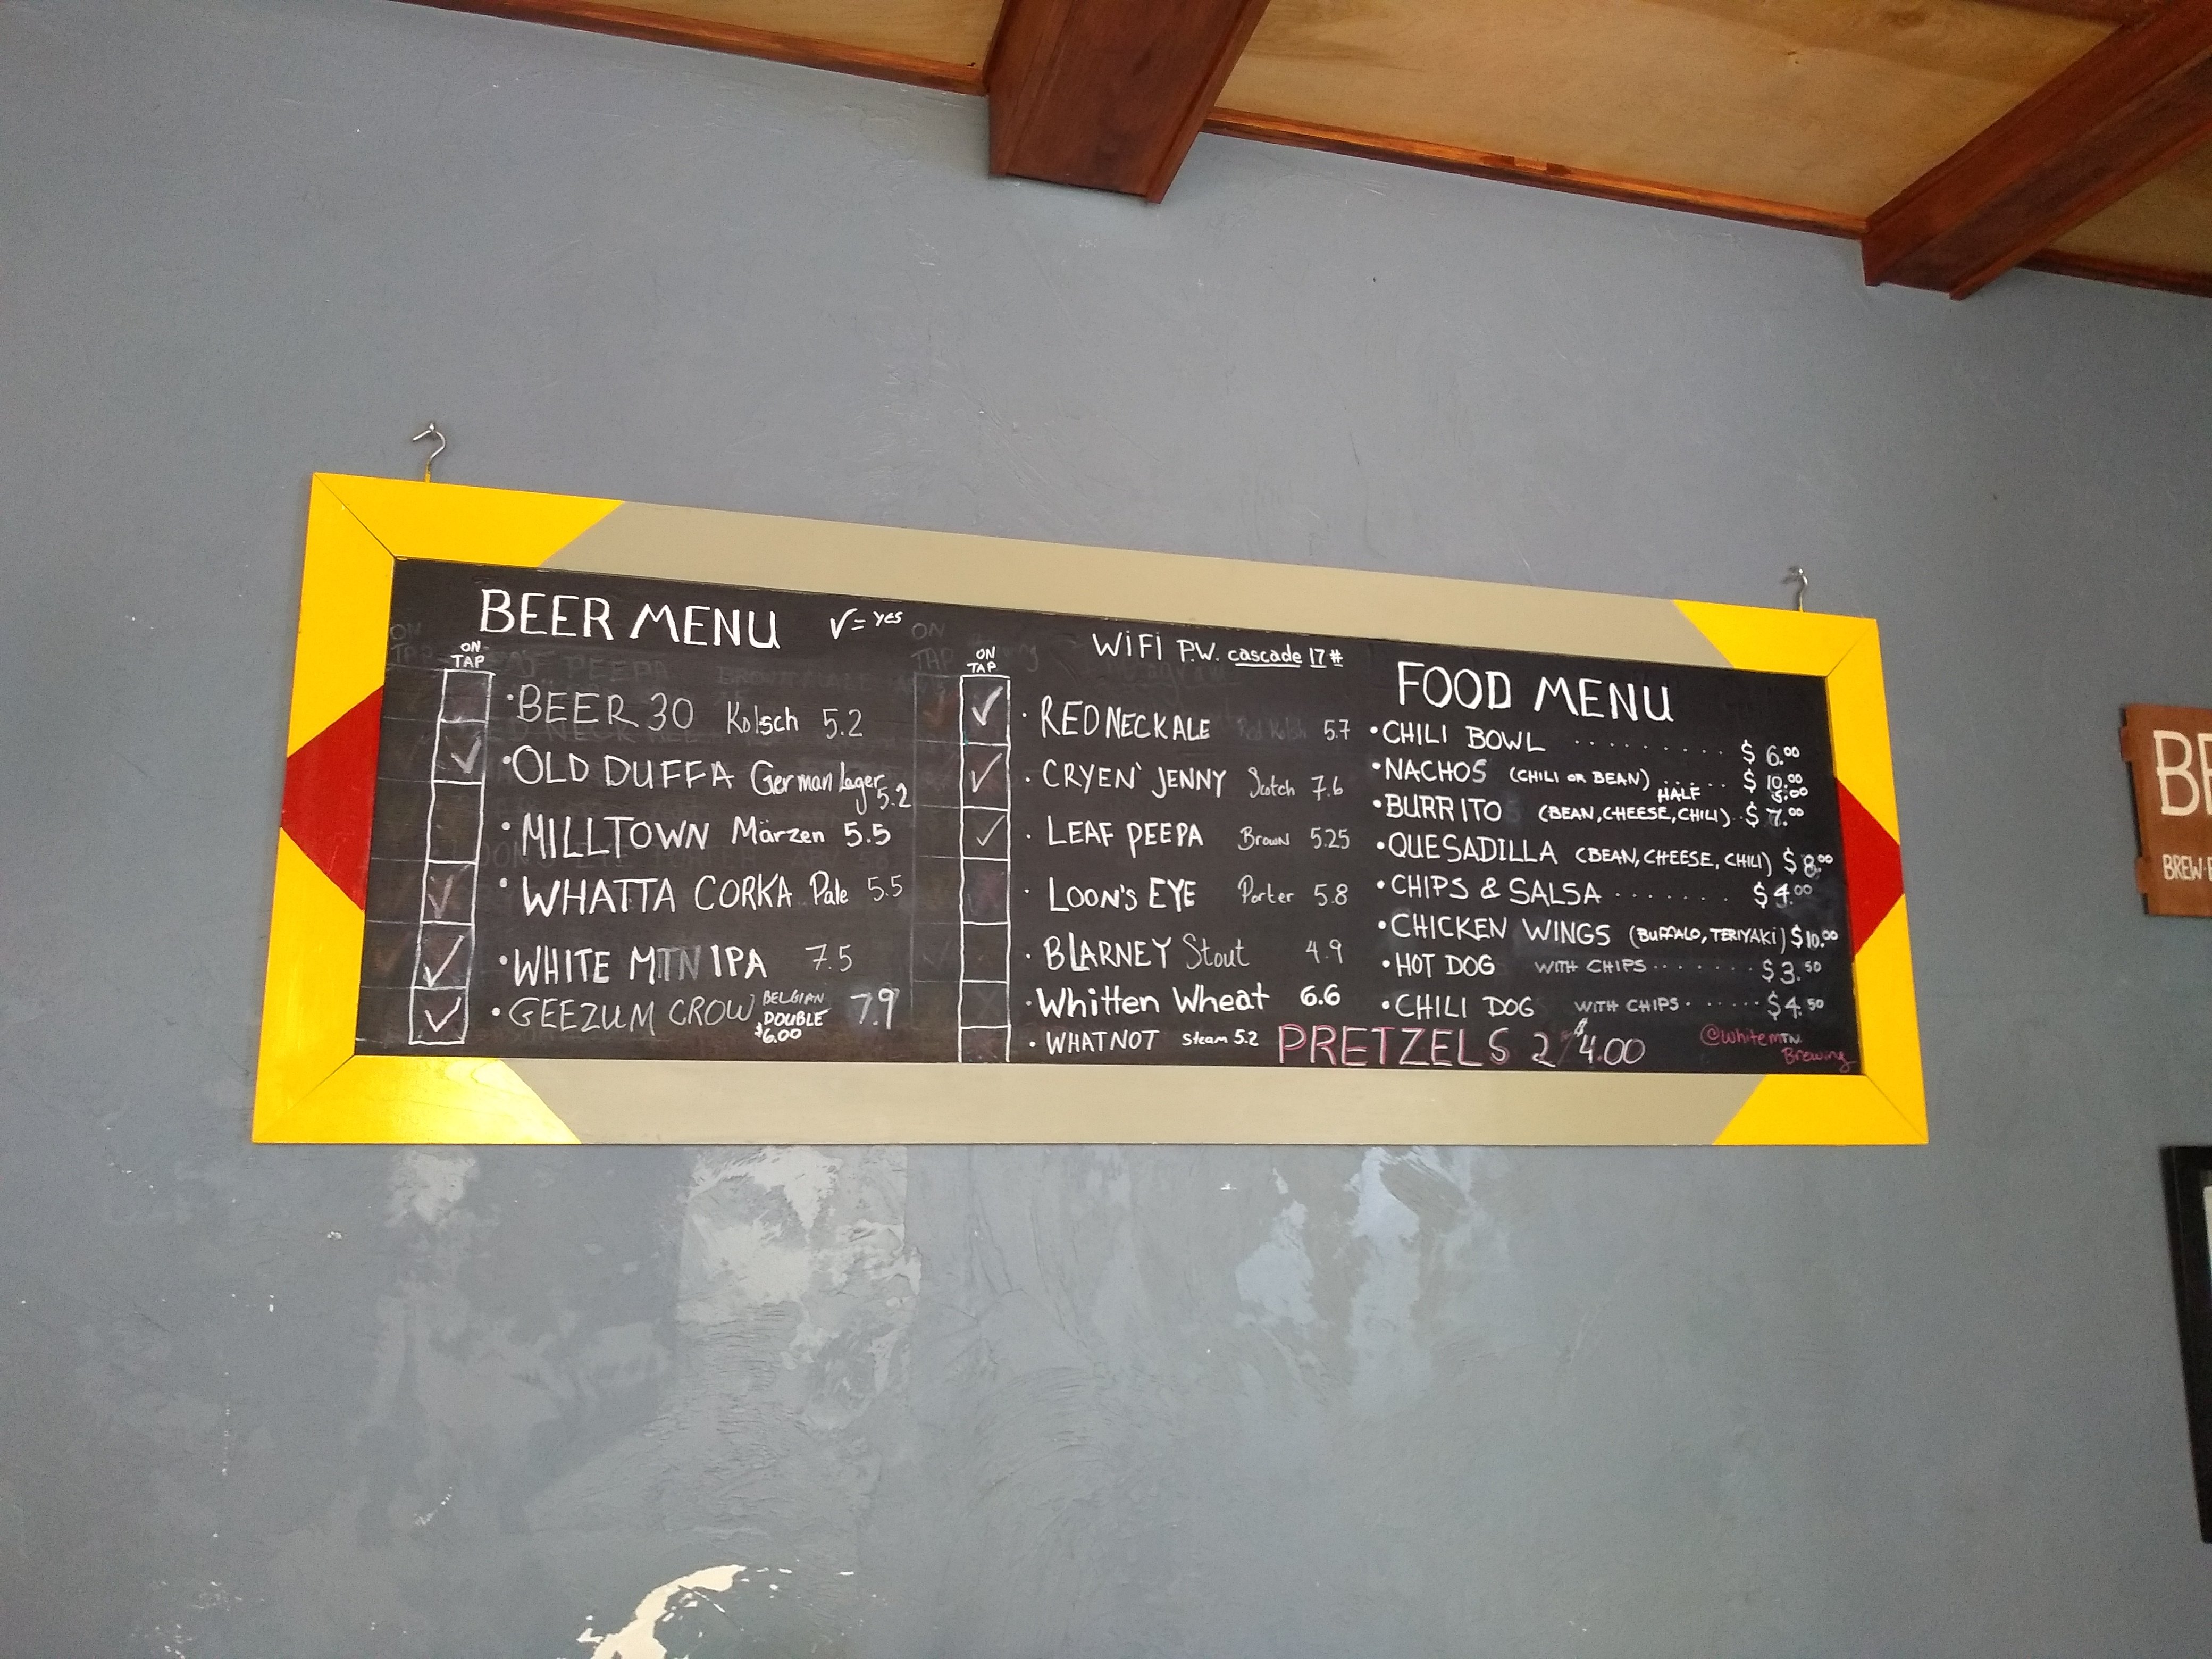 BEER MENU √= yes
ON TAP
• BEER 30 Kolsch 5.2
• OLD DUFFA German Lager 5.2
• MILLTOWN Märzen 5.5
• WHATTA CORKA Pale 5.5
• WHITE MTN IPA 7.5
• GEEZUM CROW BELGIAN DOUBLE $6.00 7.9
WiFi P.W. cascade 17#
ON TAP
• RED NECK ALE Red Kolsh 5.7
• CRYEN' JENNY Scotch 7.6
• LEAF PEEPA Brown 5.25
• LOON'S EYE Porter 5.8
• BLARNEY Stout 4.9
• Whitten Wheat 6.6
• WHATNOT Steam 5.2
FOOD MENU
• CHILI BOWL . . . . . . . . . $ 6.00
• NACHOS (CHILI OR BEAN) . . . . . $ 10.00
HALF 6.00
• BURRITO (BEAN, CHEESE, CHILI) . . $ 7.00
• QUESADILLA (BEAN, CHEESE, CHILI) $ 8.00
• CHIPS & SALSA . . . . . . . $ 4.00
• CHICKEN WINGS (BUFFALO, TERIYAKI) $ 10.00
• HOT DOG WITH CHIPS . . . . . . . $ 3.50
• CHILI DOG WITH CHIPS . . . . . . $ 4.50
PRETZELS 2/$4.00
@whitemtn.
Brewing